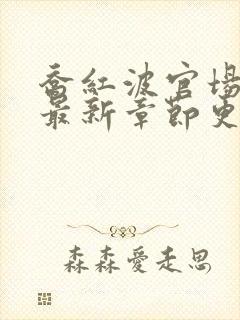 乔红波官场
最新章节更
森森爱走思